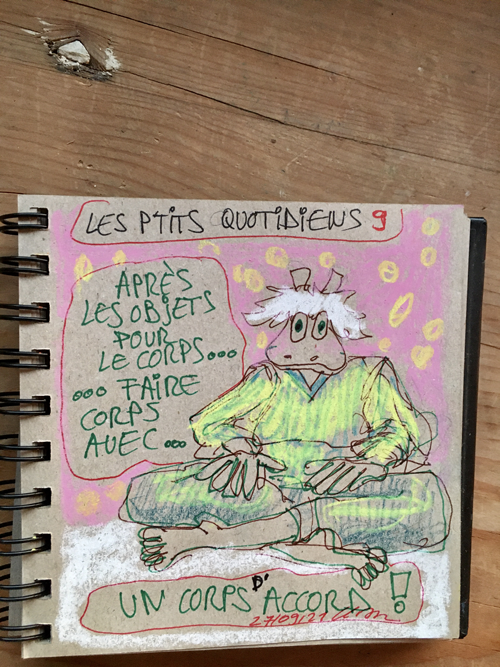 LES P'TITS QUOTIDIENS 9
APRÈS
LES OBJETS
POUR
LE CORPS...
... FAIRE
CORPS
AVEC...
UN CORPS D'ACCORD !
27/09/21